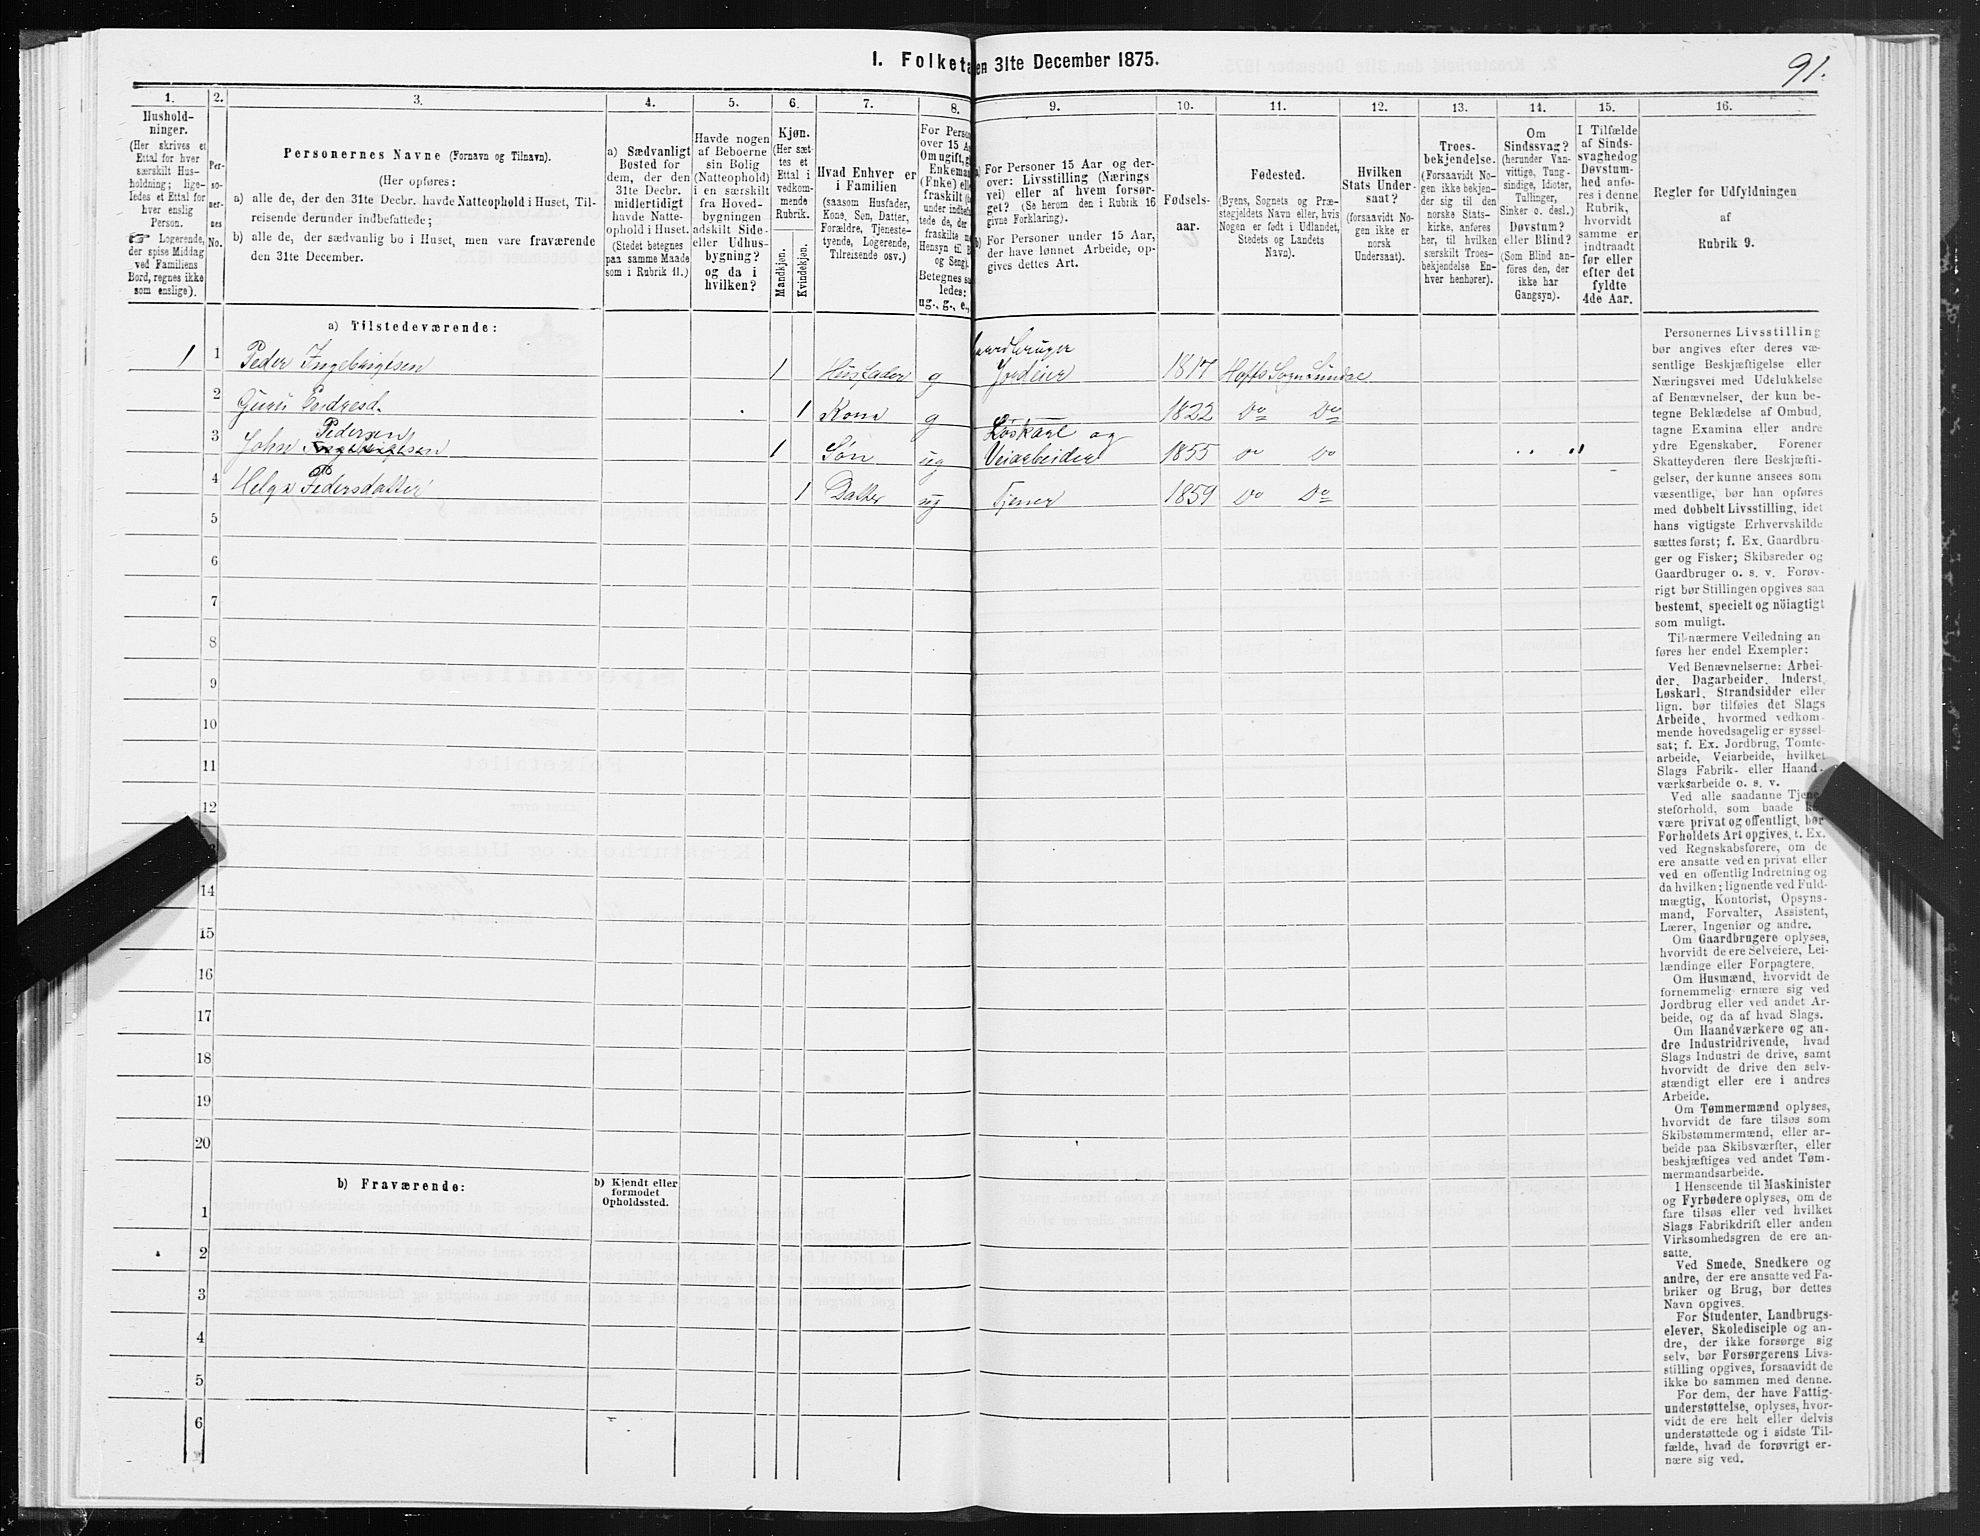 I. Folketa en 31te December 1875.
91.
1.
2.
3.
4.
5.
6.
7.
8.
9.
10.
11.
12.
13.
14.
15.
16.
Hushold-
ninger.
(Her skrives et
Ettal for hver
særskilt Hus-
holdning; lige-
ledes et Ettal for
hver enslig
Person.
☞ Logerende,
der spise Middag
ved Familiens
Bord, regnes ikke
som enslige).
Per-
so-
ner-
nes
No.
Personernes Navne (Fornavn og Tilnavn).
(Her opføres:
a) alle de, der den 31te Decbr. havde Natteophold i Huset, Til-
reisende derunder indbefattede;
b) alle de, der sædvanlig bo i Huset, men vare fraværende
den 31te December.
a) Sædvanligt
Bosted for
dem, der den
31te Decbr.
midlertidigt
havde Natte-
ophold i Huset.
(Stedet betegnes
paa samme Maade
som i Rubrik 11.)
Havde nogen
af Beboerne
sin Bolig
(Natteophold)
i en særskilt
fra Hoved-
bygningen
adskilt Side-
eller Udhus-
bygning?
og da i
hvilken?
Kjøn.
(Her sæt-
tes et
Ettal i
vedkom-
mende
Rubrik.
Mandkjøn.
Kvindekjøn.
Hvad Enhver er
i Familien
(saasom Husfader,
Kone, Søn, Datter,
Forældre, Tjeneste-
tyende, Logerende,
Tilreisende osv.)
For Person
over 15 A
Om ugift, g
Enkeman
(Enke) ell
fraskilt (
under indbef
tede de, der
fraskilte m
Hensyn til B
og Seng).
Betegnes sa
ledes:
ug., g., e.,
a) For Personer 15 Aar og der-
over: Livsstilling (Nærings
vei) eller af hvem forsør-
get? (Se herom den i Rubrik 16
givne Forklaring).
b) For Personer under 15 Aar,
der have lønnet Arbeide, op-
gives dettes Art.
Fødsels-
aar.
Fødested.
(Byens, Sognets og Præ-
stegjeldets Navn eller, hvis
Nogen er født i Udlandet,
Stedets og Landets
Navn).
Hvilken
Stats Under-
saat?
(forsaavidt No-
gen ikke er
norsk
Undersaat).
Troes-
bekjendelse.
(Forsaavidt No-
gen ikke bekjen-
der sig til den
norske Stats-
kirke, anføres
her, til hvilken
særskilt Troes-
bekjendelse En-
hver henhører).
Om
Sindssvag?
(herunder Van-
vittige, Tung-
sindige, Idioter,
Tullinger,
Sinker o. desl.)
Døvstum?
eller Blind?
(Som Blind an-
føres den, der
ikke har
Gangsyn).
I Tilfælde
af Sinds-
svaghedog
Døvstum-
hed anfø-
res i denne
Rubrik,
hvorvidt
samme er
indtraadt
før eller
efter det
fyldte
4de Aar.
Regler for Udfyldningen
af
Rubrik 9.
a) Tilstedeværende:
1 1 Peder Ingebrigtsen 1 Husfader g Gaardbruger Jordeier 1817 Hoffs Sogn Sundal
2 Guru Endresd. 1 Kone g 1822 Do Do
3 John Pedersen 1 Søn ug Løskarl og Veiarbeider 1855 do do
4 Helga Pedersdatter 1 Datter ug Tjener 1859 Do Do
5
6
7
8
9
10
11
12
14
15
16
17
18
19
20
b) Fraværende:
b) Kjendt eller
formodet
Opholdssted.
1
2
3
4
5
6
Personernes Livsstilling
bør angives efter deres væ-
sentlige Beskjæftigelse eller
Næringsvei med Udelukkelse
af Benævnelser, der kun be-
tegne Beklædelse af Ombud,
tagne Examina eller andre
ydre Egenskaber. Forener
Skatteyderen flere Beskjæfti-
gelser, der kunne ansees som
væsentlige, bør han opføres
med dobbelt Livsstilling, idet
hans vigtigste Erhvervskilde
sættes først; f. Ex. Gaardbru-
ger og Fisker; Skibsreder og
Gaardbruger o. s. v. Forøv-
rigt bør Stillingen opgives saa
bestemt, specielt og nöiagtigt
som muligt.
Til nærmere Veiledning an
føres her endel Exempler:
Ved Benævnelserne: Arbei-
der, Dagarbeider, Inderst,
Løskarl, Strandsidder eller
lign. bør tilføies det Slags
Arbeide, hvormed vedkom-
mende hovedsagelig er syssel-
sat; f. Ex. Jordbrug, Tomte-
arbeide, Veiarbeide, hvilket
Slags Fabrik- eller Haand-
værksarbeide o. s. v.
Ved alle saadanne Tjene-
steforhold, som baade k
være privat og offentligt, bør
Forholdets Art opgives, t. Ex.
ved Regnskabsførere, om de
ere ansatte ved en privat eller
ved en offentlig Indretning og
da hvilken; lignende ved Fuld-
mægtig, Kontorist, Opsyns-
mand, Forvalter, Assistent,
Lærer, Ingeniør og andre.
Om Gaardbrugere oplyses,
hvorvidt de ere Selveiere, Lei-
lændinge eller Forpagtere.
Om Husmænd, hvorvidt de
fornemmelig ernære sig ved
Jordbrug eller ved andet Ar-
beide, og da af hvad Slags.
Om Haandværkere og an-
dre Industridrivende, hvad
Slags Industri de drive, samt
hvorvidt de drive den selv-
stændigt eller ere i andres
Arbeide.
Om Tømmermænd oplyses,
hvorvidt de fare tilsøs som
Skibstømmermænd, eller ar-
beide paa Skibsværfter, eller
beskjæftiges ved andet Tøm-
mermandsarbeide.
I Henseende til Maskinister
og Fyrbødere oplyses, om de
fare tilsøs eller ved hvilket
Slags Fabrikdrift eller anden
Virksomhedsgren de ere an-
satte.
Ved Smede, Snedkere og
andre, der ere ansatte ved Fa-
briker og Brug, bør dettes
Navn opgives.
For Studenter, Landbrugs-
elever, Skoledisciple og an-
dre, der ikke forsørge sig
selv, bør Forsørgerens Livs-
stilling opgives, forsaavidt de
ikke bo sammen med denne.
For dem, der have Fattig-
understøttelse, oplyses, hvor-
vidt de ere helt eller delvis
understøttede og i sidste Til-
fælde, hvad de forøvrigt er-
nære sig ved.